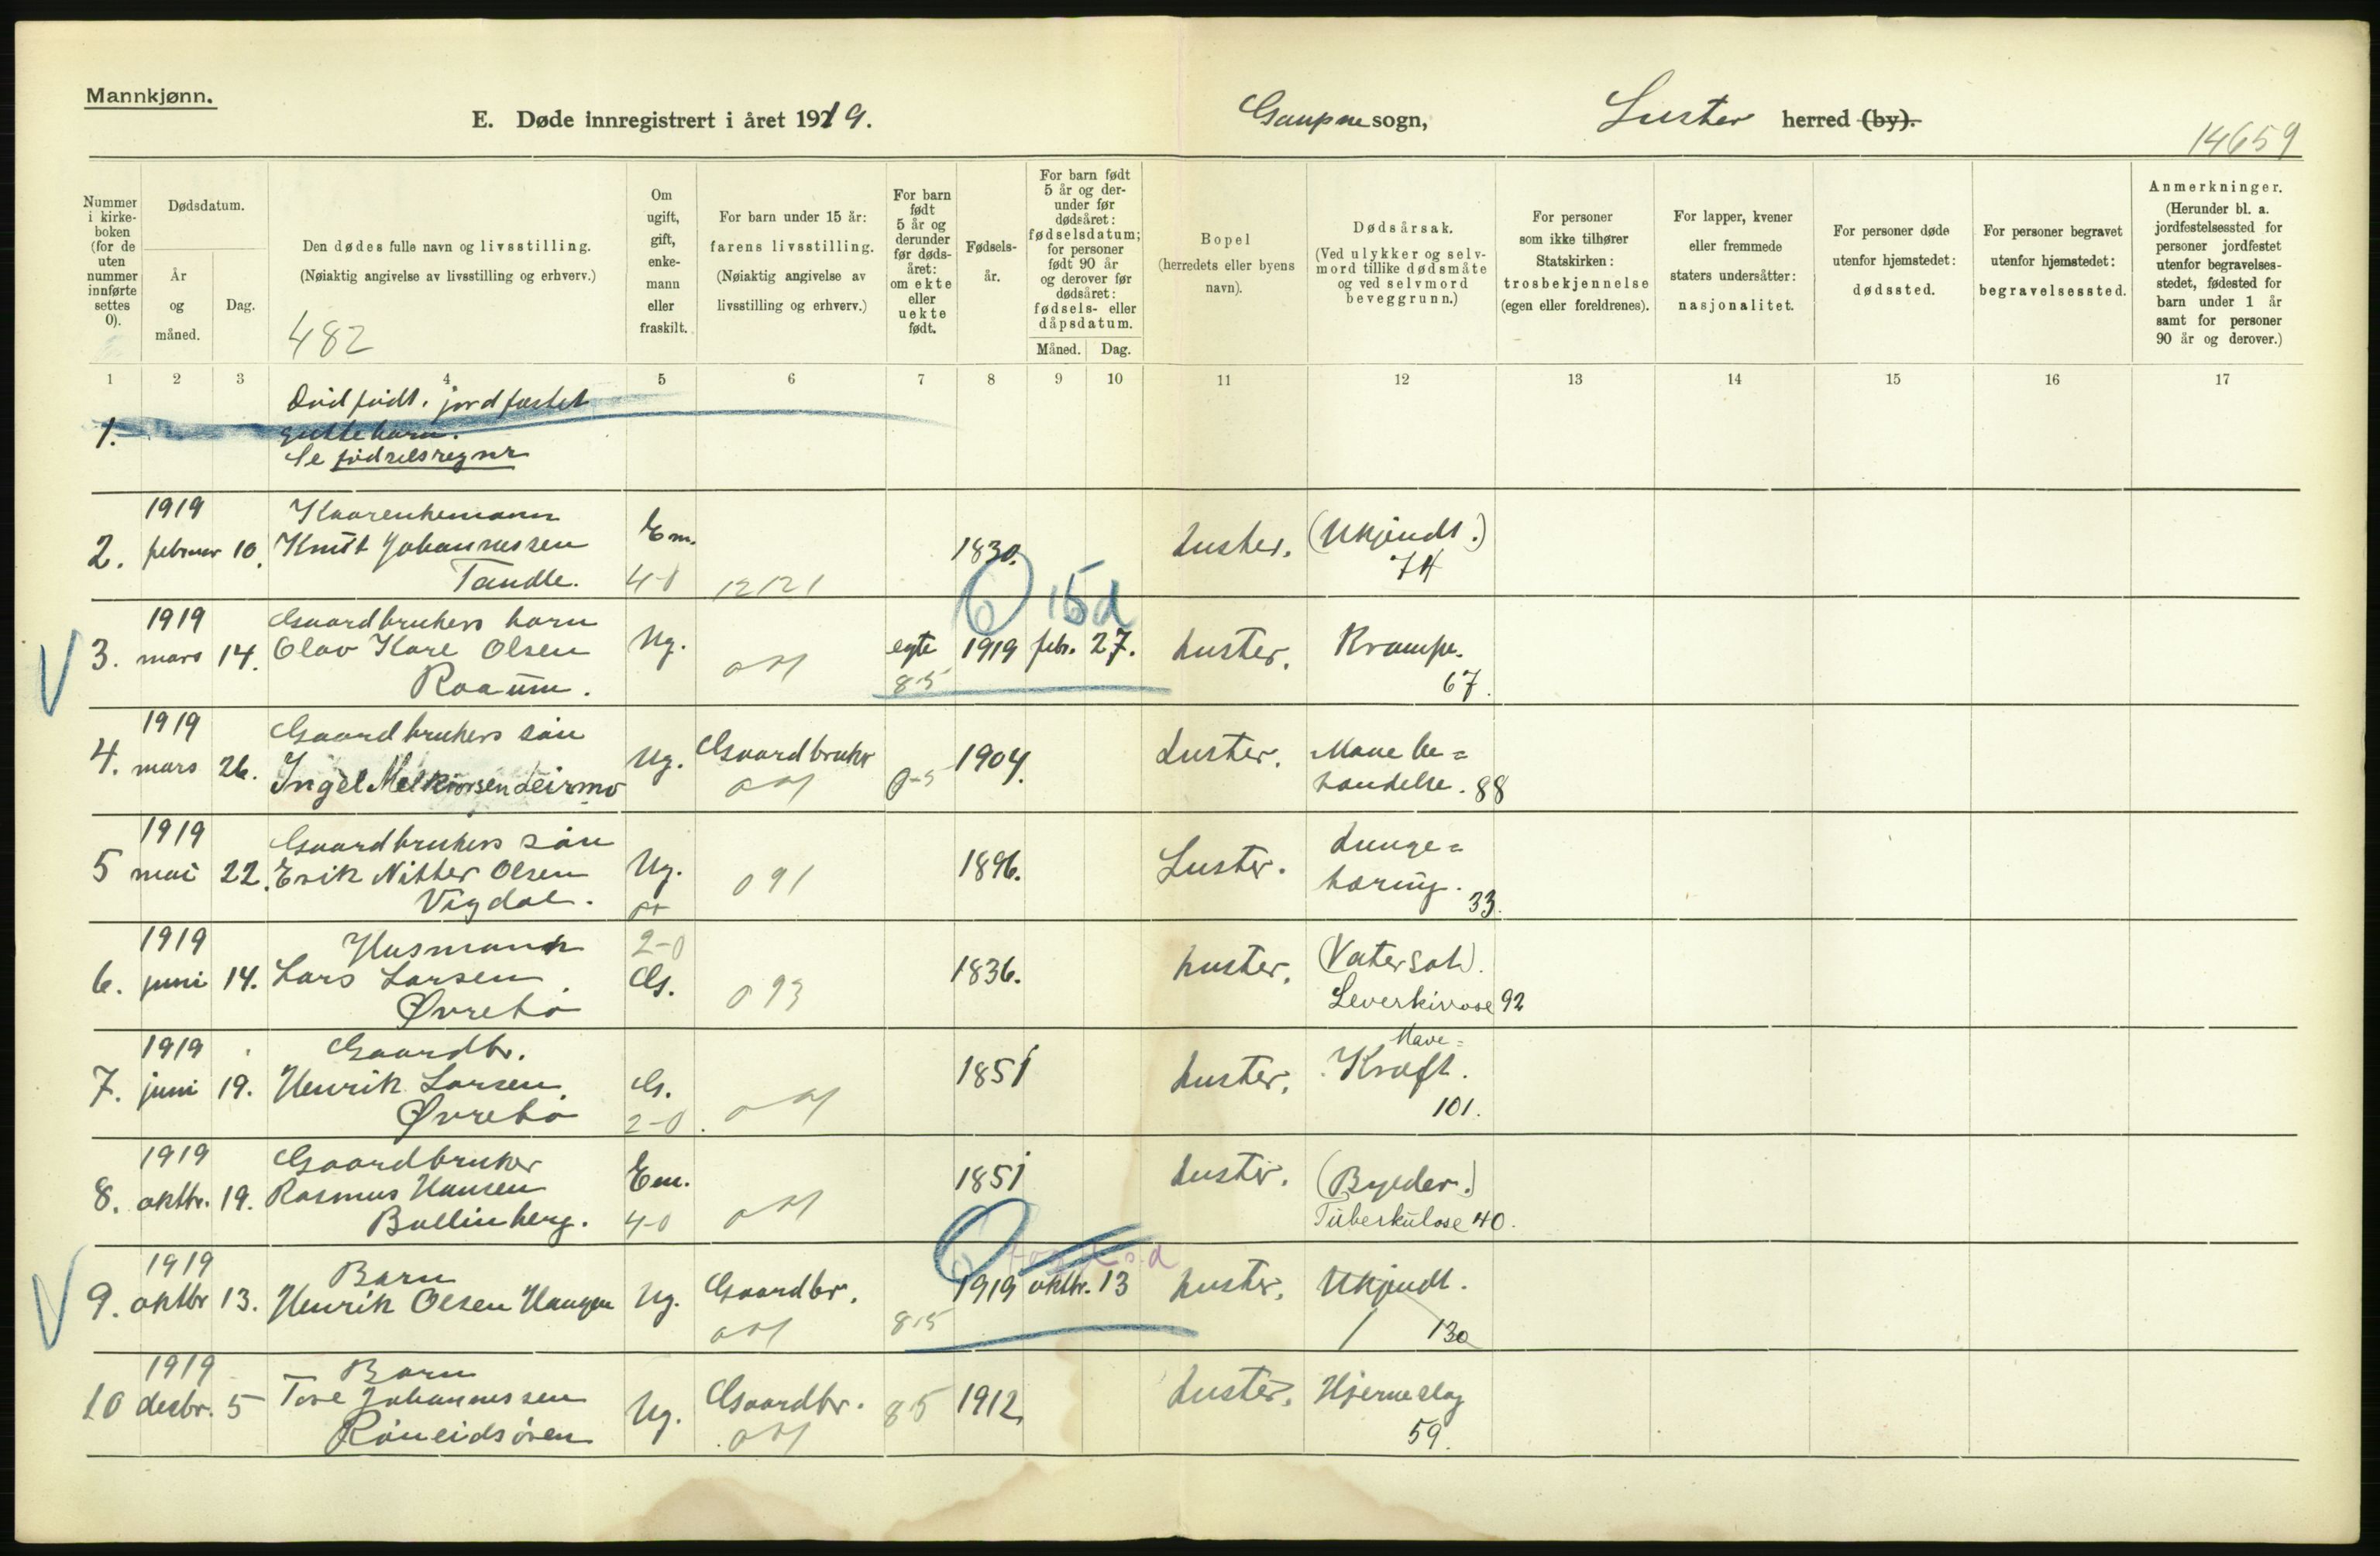 Mannkjønn.
E. Døde innregistrert i året 1919.
Gaupne sogn,
Luster herred (by).
14659
Nummer i kirke-boken (for de uten nummer innførte settes 0).
Dødsdatum.
År og måned.
Dag.
Den dødes fulle navn og livsstilling.
(Nøiaktig angivelse av livsstilling og erhverv.)
482
Om ugift, gift, enke-mann eller fraskilt.
For barn under 15 år:
farens livsstilling.
(Nøiaktig angivelse av livsstilling og erhverv.)
For barn født 5 år og derunder før døds-året: om ekte eller uekte født.
Fødsels-år.
For barn født 5 år og der-under før dødsåret: fødselsdatum; for personer født 90 år og derover før dødsåret: fødsels- eller dåpsdatum.
Måned. Dag.
Bopel
(herredets eller byens navn).
Dødsårsak.
(Ved ulykker og selv-mord tillike dødsmåte og ved selvmord beveggrunn.)
For personer som ikke tilhører Statskirken: trosbekjennelse (egen eller foreldrenes).
For lapper, kvener eller fremmede staters undersåtter: nasjonalitet.
For personer døde utenfor hjemstedet: dødssted.
For personer begravet utenfor hjemstedet: begravelsessted.
Anmerkninger.
(Herunder bl. a. jordfestelsessted for personer jordfestet utenfor begravelses-stedet, fødested for barn under 1 år samt for personer 90 år og derover.)
1 2 3 4 5 6 7 8 9 10 11 12 13 14 15 16 17
Dødfødt, jordfæstet
1. guttebarn.
Se fødselsregnr
1919 Kaarenkemann
2. februar 10. Knut Johannessen Em. 1830. Luster. (Ukjendt.)
Tandle. 4-0 12121 74
6 15d
1919 Gaardbrukers barn
3. mars 14. Olav Kare Olsen Ug. egte 1919 febr. 27. Luster. Krampe.
Raaum. 85 67.
1919 Gaardbrukers søn
4. mars 26. Ingel Melkiorsen Leirmo Ug. Gaardbruker 1904. Luster. Mavebe=
handelse. 88
1919 Gaardbrukers søn Lunge=
5 mai 22. Erik Nitter Olsen Ug. 091 1896. Luster. tæring.
Vigdal. 33.
1919 Husmann 2-0
6. juni 14. Lars Larsen G. 093 1836. Luster. (Vatersot).
Øvrebø Leverkirrose 92
1919 Gaardbr. Mave=
7. juni 19. Henrik Larsen G. 1851 Luster. Kræft.
Øvrebø 2-0. 101.
1919 Gaardbruker
8. oktbr. 19. Rasmus Hansen Em. 1851 Luster. (Bylder.)
Bollinberg. 4-0 Tuberkulose 40.
6
1919 Barn
9. oktbr 13. Henrik Olsen Haugen Ug. Gaardbr. 1919 oktbr. 13 Luster. Ukjendt.
85 130
1919 Barn
10 desbr. 5 Tore Johannessen Ug. Gaardbr. 85 1912. Luster. Hjerneslag
Røneidsøren 59.